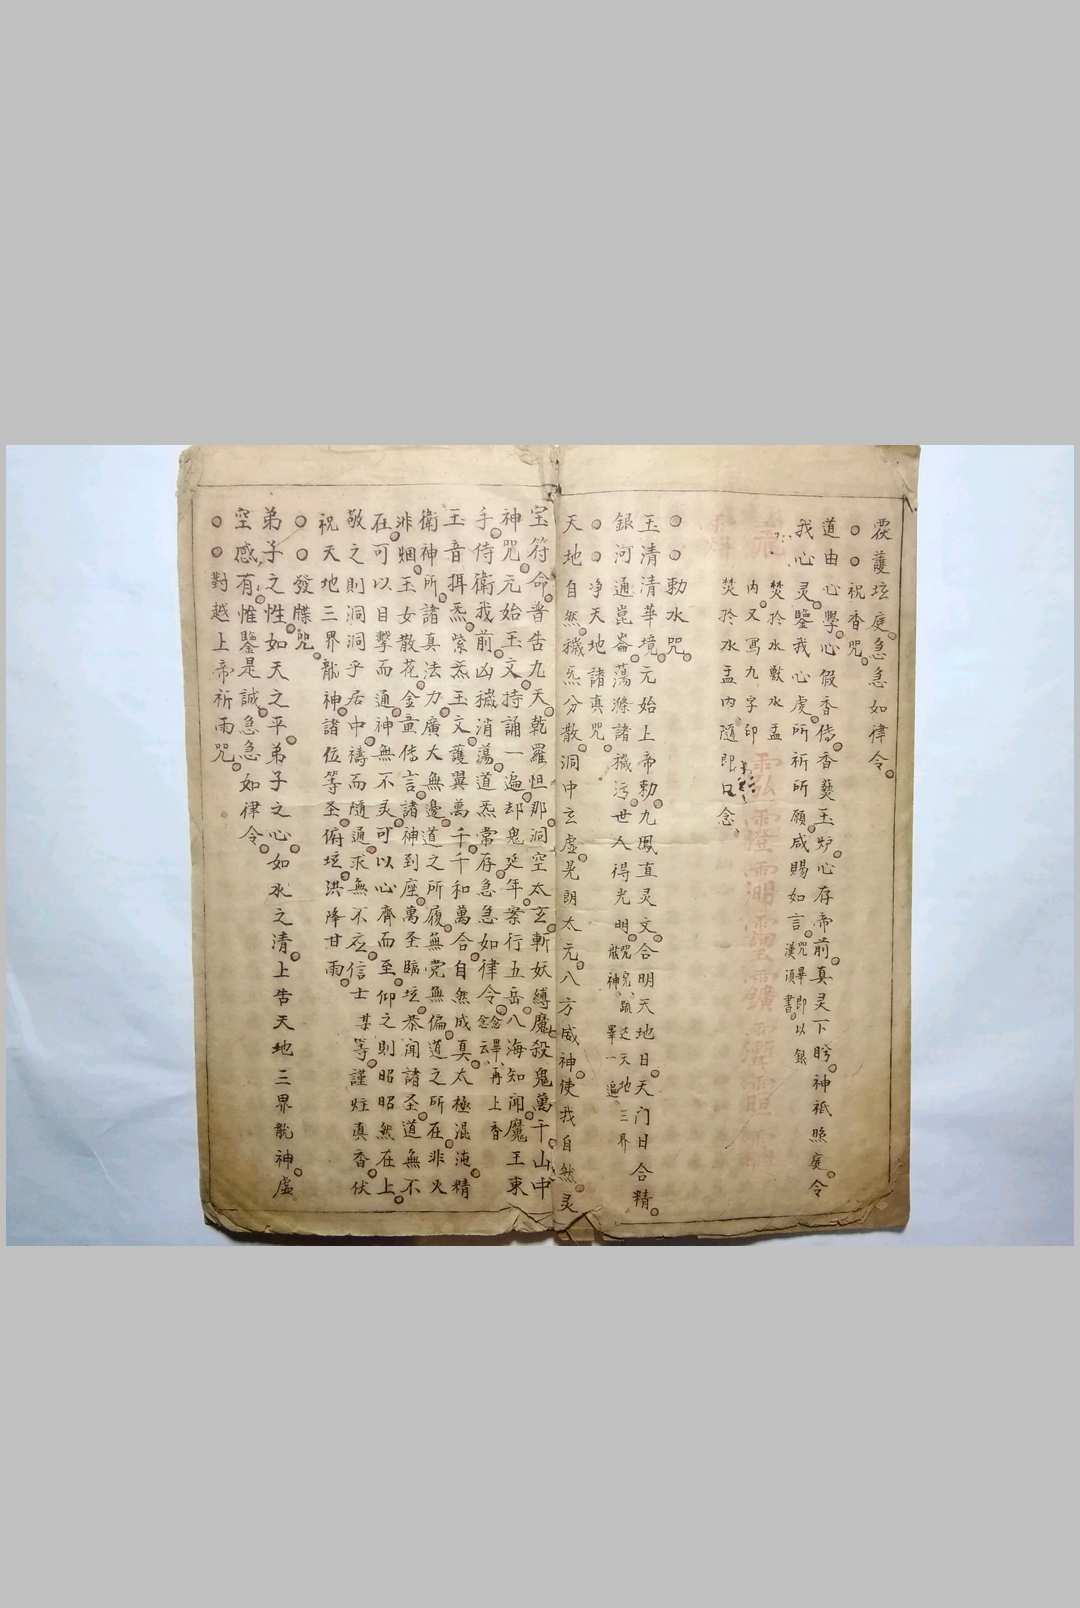 護坛庭急急如律令
○○祝香咒
道由心學心假香傳香爇玉炉心存帝前真灵下盻神祗照庭令
我心灵鑒我心虔所祈所願咸賜如言咒畢即以銀
漢頂書
焚於水敕水盂
内又寫九字印
焚於水盂内隨即口念
○○勅水咒
玉清清華境元始上帝勅九鳳直灵文合明天地日天门日合精
銀河通崑崙蕩滌諸穢污世人得光明咒完跪迓天地三界
○○净天地諸真咒
天地自然穢炁分散洞中玄虛晃朗太元八方威神使我自然灵
宝符命普告九天乾羅怛那洞空太玄斬妖縛魔殺鬼萬千山中
神咒元始玉文持誦一遍却鬼延年案行五岳八海知聞魔王束
手侍衛我前凶穢消蕩道炁常存急急如律令念畢再上香
念云
玉音揖炁縈炁玉文護翼萬千千和萬合自然成真太極混沌精
衛神所諸真法力廣大無邊道之所履無党無偏道之所在非火
非烟玉女散花金童傳言諸神到座萬圣臨坛恭聞諸圣道無不
在可以目擊而通神無不灵可以心齊而至仰之則昭昭然在上
敬之則洞洞乎居中禱而隨通求無不应信士某等謹炷真香伏
祝天地三界龍神諸位等圣俯坛洪降甘雨
○○發牒咒
弟子之性如天之平弟子之心如水之清上告天地三界龍神虛
空感有惟鑒是誠急急如律令
○○對越上帝祈雨咒